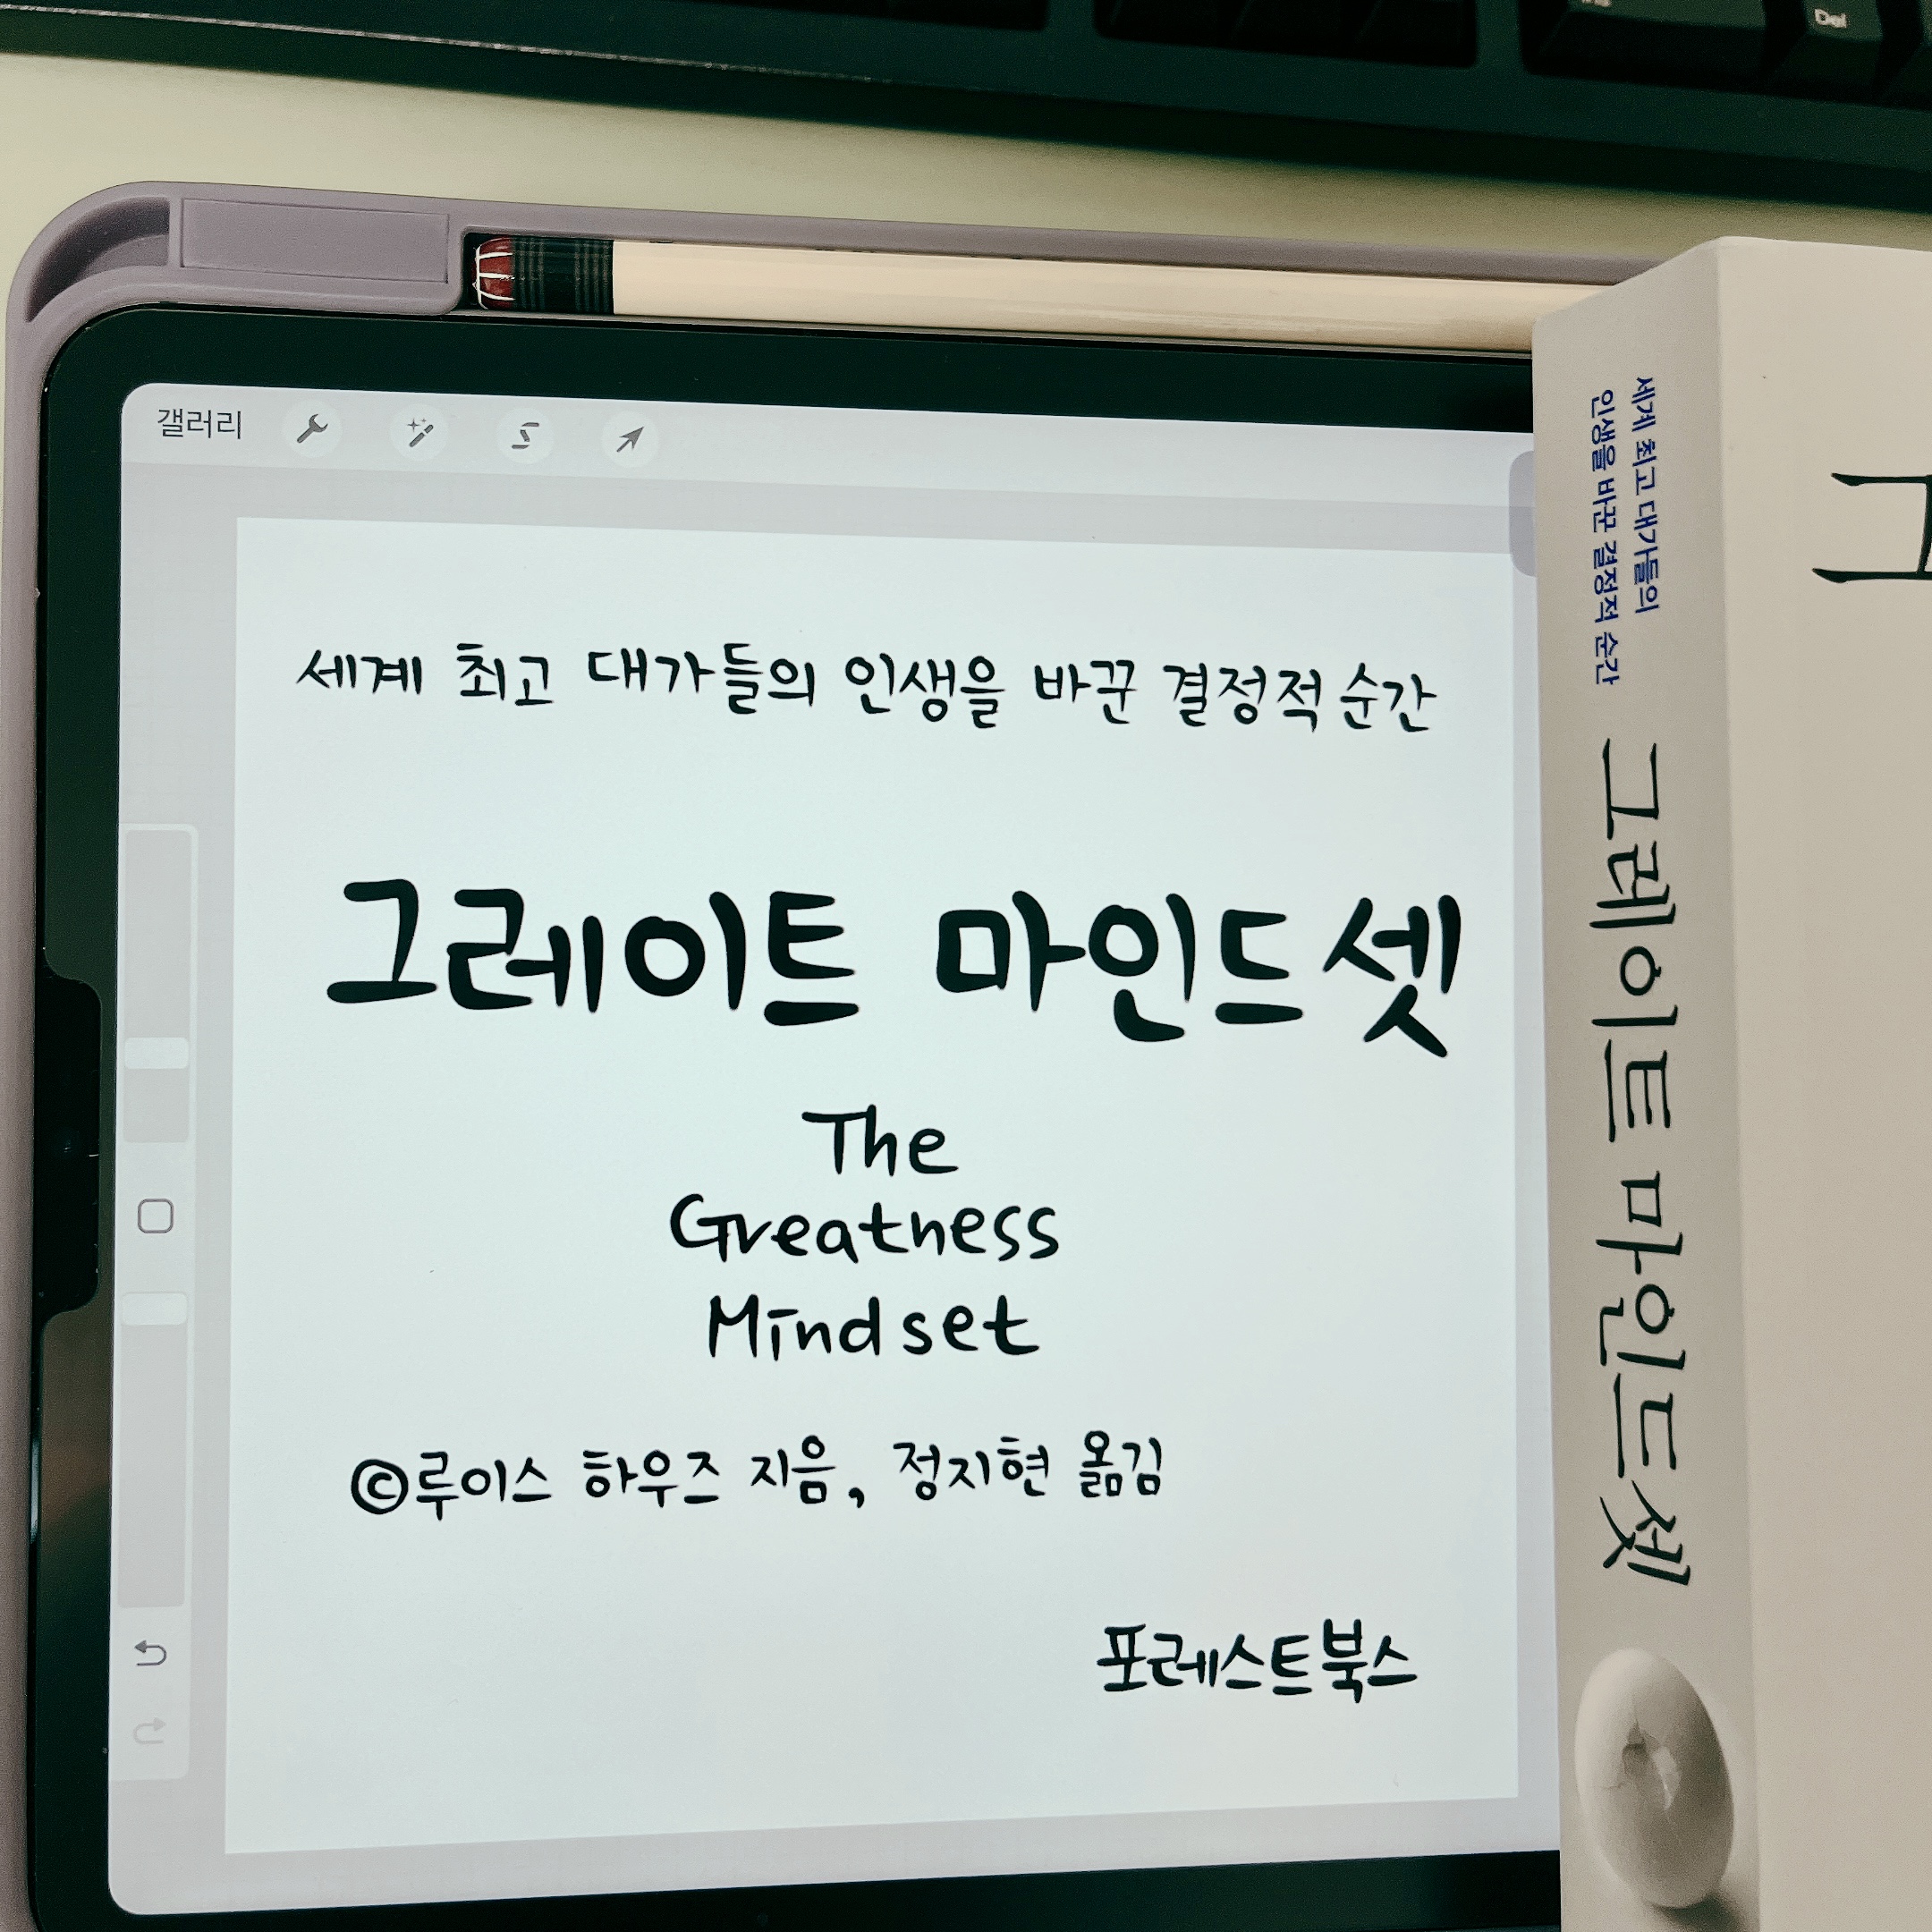 Del
갤러리
세계 최고 대가들의 인생을 바꾼 결정적 순간
그레이트 마인드셋
The
Greatness
Mindset
©루이스 하우즈 지음, 정지현 옮김
포레스트북스
세계 최고 대가들의
인생을 바꾼 결정적 순간
그레이트 마인드셋